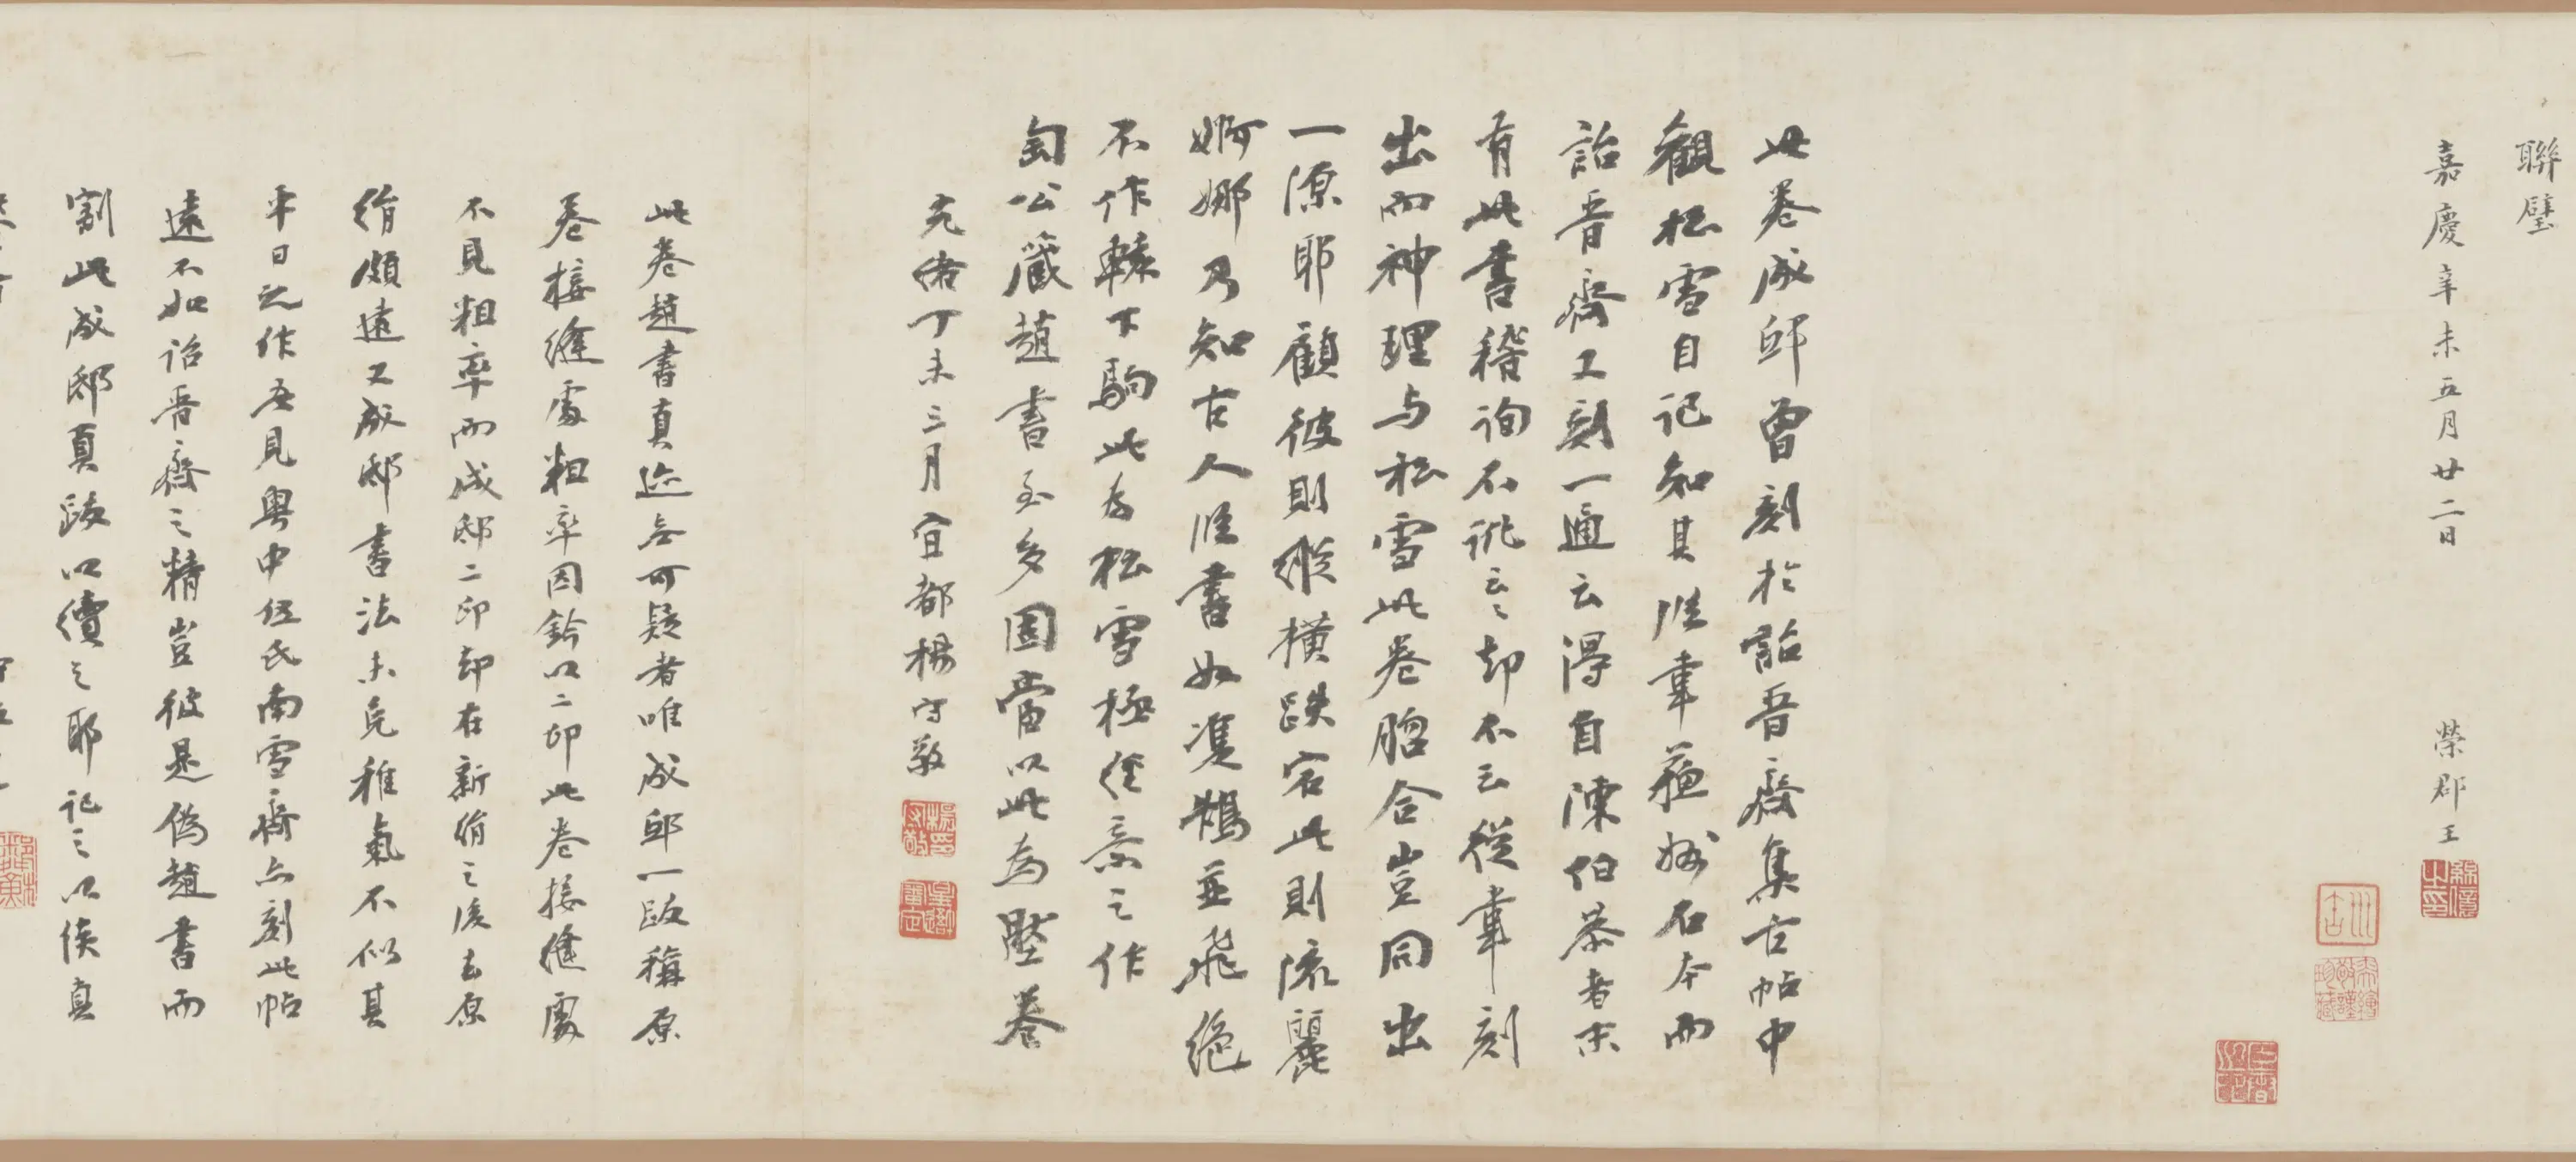 聯璧
嘉慶辛未五月廿二日 榮郡王
此卷成邸曾刻於詒晉齋集古帖中
觀松雪自記知其臨韋蘇州石本而
詒晉齋又刻一通云得自陳伯恭者末
有此書稽詢不訛云々却不云從韋刻
出而神理与松雪此卷脗合豈同出
一源耶顧彼則縱橫跌宕此則流麗
婀娜乃知古人臨書如雙鵠並飛絕
不作轅下駒此為松雪極經意之作
匋公藏趙書至多固當以此為壓卷
光緒丁未三月宜都楊守敬
此卷趙書真跡無可疑者唯成邸一跋稱原
卷接縫處粗率因鈐以二印此卷接縫處
不見粗率而成邸二印却在新絹之後去原
絹頗遠又成邸書法未免稚氣不似其
平日之作吾見粵中伍氏南雪齋亦刻此帖
遠不如詒晉齋之精豈彼是偽趙書而
割此成邸真跋以續之耶記之以俟真